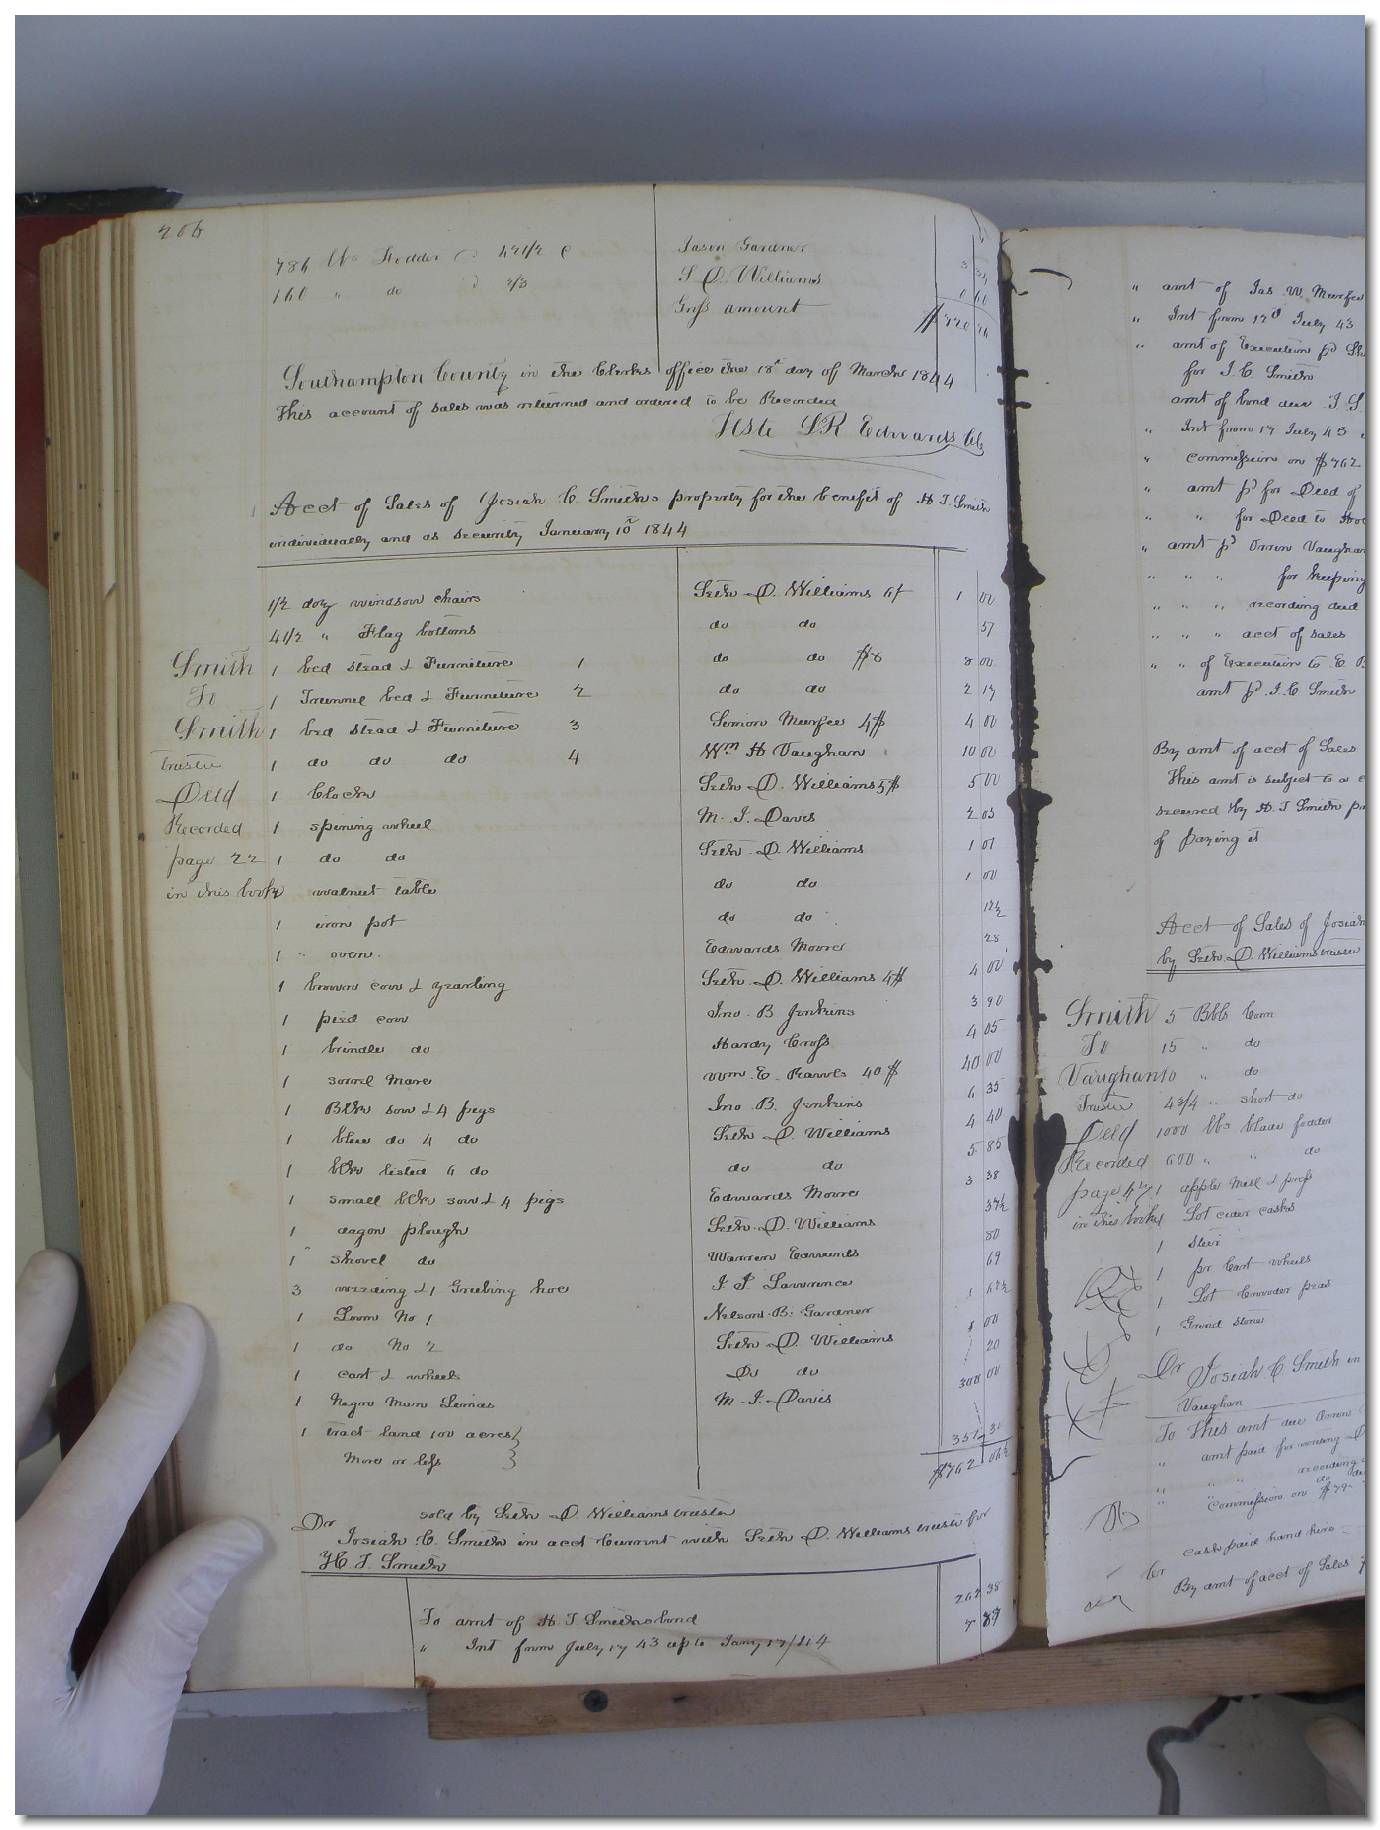 206
784 lbs Fodder @ 42 1/2 c Jason Gardner 3 34
160 " do @ 2/3 S D. Williams 0 60
Gross amount $420 76
Southampton County in the Clerks office the 18th day of March 1844
This account of sales was returned and ordered to be Recorded
Teste L R Edwards Clk
Acct of Sales of Josiah C Smiths property for the benefit of H T. Smith
individually and as security January 10th 1844
1/2 doz windsor chairs Seth D. Williams 6/ 1 00
4 1/2 " Flag bottoms do do 57
Smith 1 bed stead & Furniture 1 do do $8 8 00
To 1 Trunnel bed & Furniture 2 do do 2 17
Smith 1 bed stead & Furniture 3 Simon Murfee 4$ 4 00
trustee 1 do do do 4 Wm H Vaughan 10 00
Deed 1 Clock Seth D. Williams 5$ 5 00
Recorded 1 spining wheel M. J. Davis 2 05
page 22 1 do do Seth D. Williams 1 01
in this book walnut table do do 1 00
1 iron pot do do 12 1/2
1 " oven Edwards Moore 28
1 brown cow & yearling Seth D. Williams 4$ 4 00
1 pied cow Jno. B Jenkins 3 90
1 brindle do Hardy Cross 4 05
1 sorrel Mare Wm. E. Rawls 40$ 40 00
1 Blk sow & 4 pigs Jno. B. Jenkins 6 35
1 blue do 4 do Seth D. Williams 4 40
1 blk listed 6 do do do 5 85
1 small blk sow & 4 pigs Edwards Moore 3 38
1 dagon plough Seth D. Williams 37 1/2
1 shovel do Warren 80
3 weeding & 1 Grubing hoe J. P. Lawrence 69
1 Loom No 1 Nelson B. Gardner 1 67 1/2
1 do No 2 Seth D. Williams 1 00
1 cart & wheels Do do 20
1 Negro Man M. J. Davis 300 00
1 tract land 100 acres
More or less 357 31
$762 06 1/2
sold by Seth D Williams trustee
Dr Josiah C. Smith in acct Current with Seth D. Williams trustee for
H. T. Smith
To amt of H T Smiths bond 262 38
" Int from July 17 43 up to Jany 17/44 7 87
" amt of Jas W. Murfee
" Int from 12th July 43
" amt of Execution pd
for J. C Smith
amt of bond due J S
" Int from 17 July 43
" commission on $762
" amt pd for Deed of
" " for Deed to
" amt pd Orren Vaughan
" " " for keeping
" " " recording deed
" " " acct of sales
" " of Execution to E
amt pd J. C Smith
By amt of acct of Sales
This amt is subject to a
secured by H. T Smith
of paying it
Acct of Sales of Josiah
by Seth D. Williams trustee
Smith 5 Bbls Corn
To 15 " do
Vaughan 10 " do
Trustee 4 3/4 " short do
Deed 1000 lbs blade fodder
Recorded 600 " " do
page 47 1 apple Mill & press
in this book 1 Lot cider casks
1 Steer
1 pr Cart wheels
1 Lot Crowder peas
1 Grind stone
Dr Josiah C. Smith in
Vaughan
To This amt due Orren
" amt paid for
" " recording
do
" commission on $
cash paid hand hire
Cr
By amt of acct of Sales